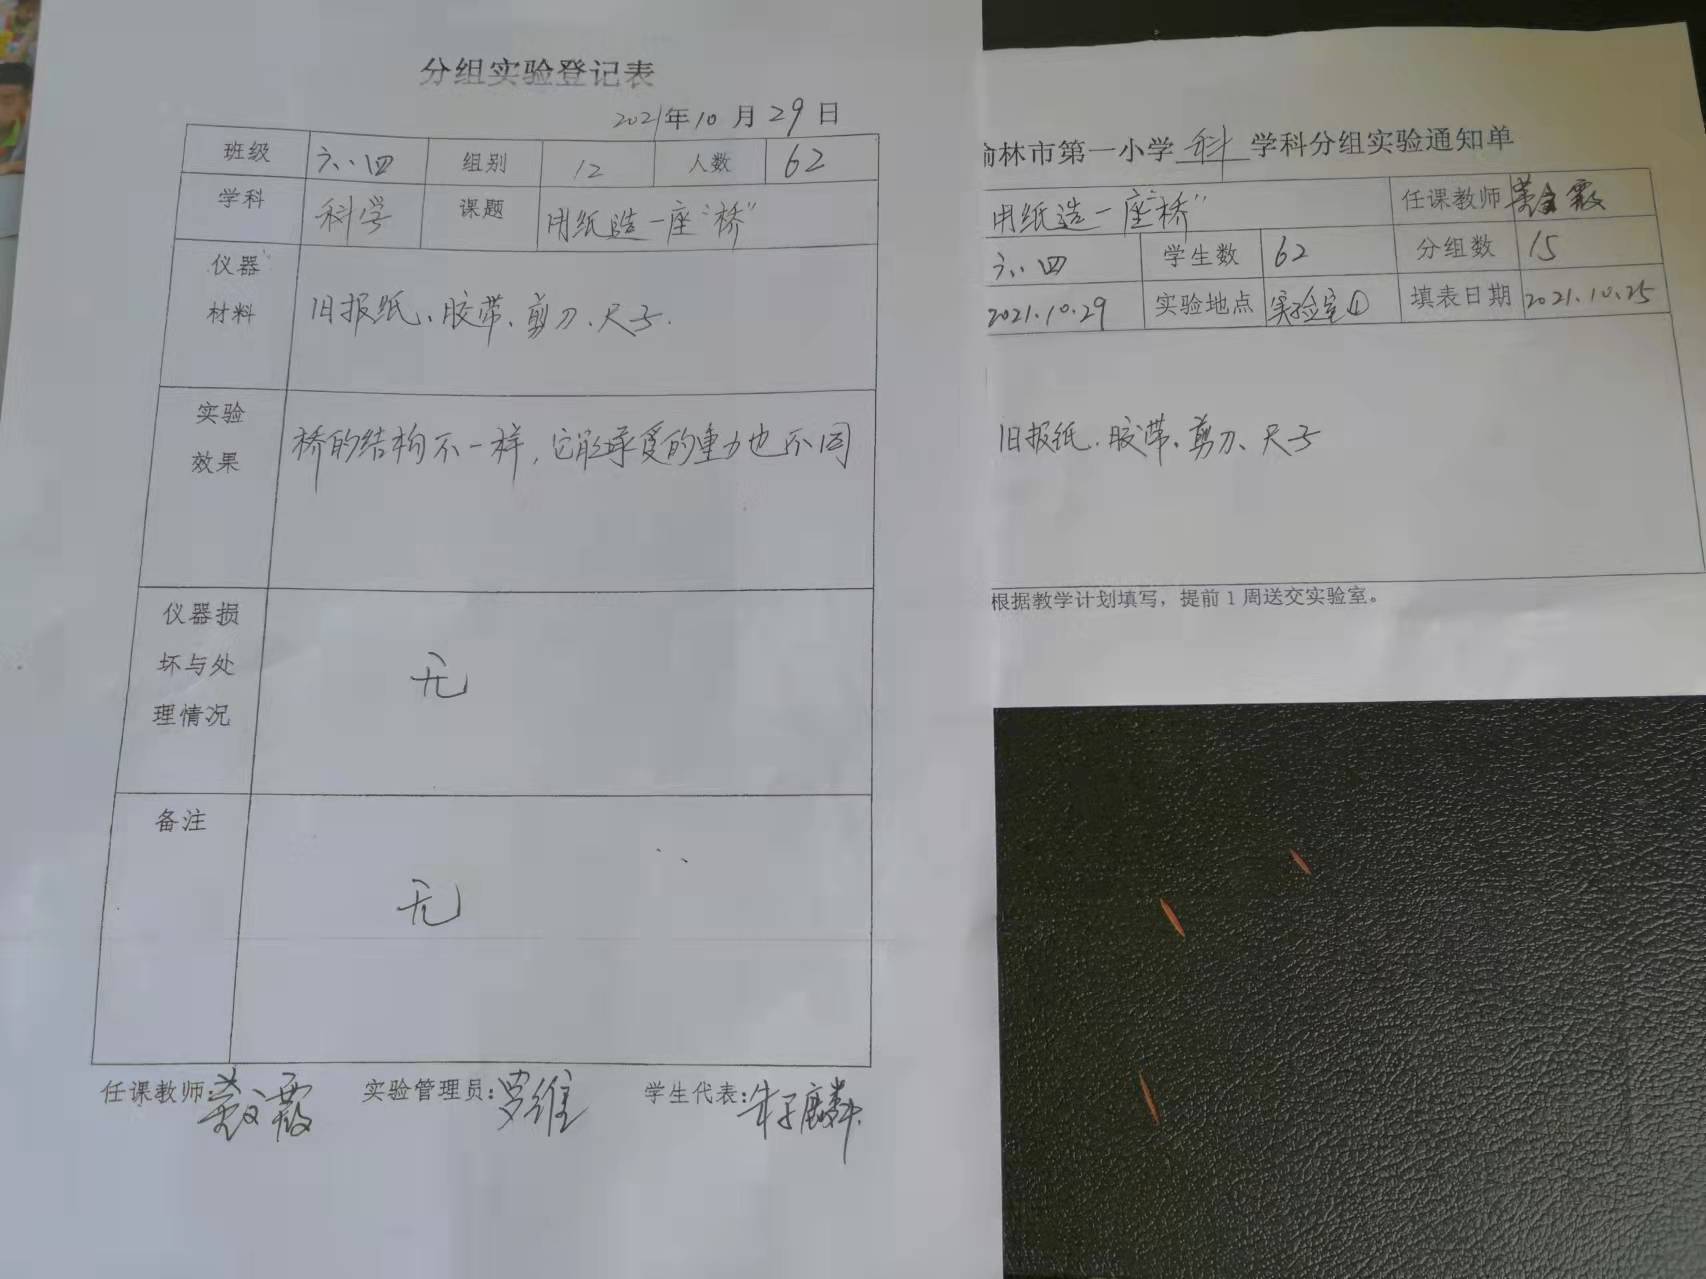 分组实验登记表
2021年10月29日
班级 六.四 组别 12 人数 62
学科 科学 课题 用纸造一座“桥”
仪器
材料
旧报纸、胶带、剪刀、尺子.
实验
效果
桥的结构不一样，它能承受的重力也不同
仪器损
坏与处
理情况
无
备注
无
任课教师: 实验管理员:罗维 学生代表:朱子麟
榆林市第一小学 科 学科分组实验通知单
用纸造一座“桥” 任课教师
六.四 学生数 62 分组数 15
2021.10.29 实验地点 实验室① 填表日期 2021.10.25
旧报纸、胶带、剪刀、尺子
根据教学计划填写，提前1周送交实验室。